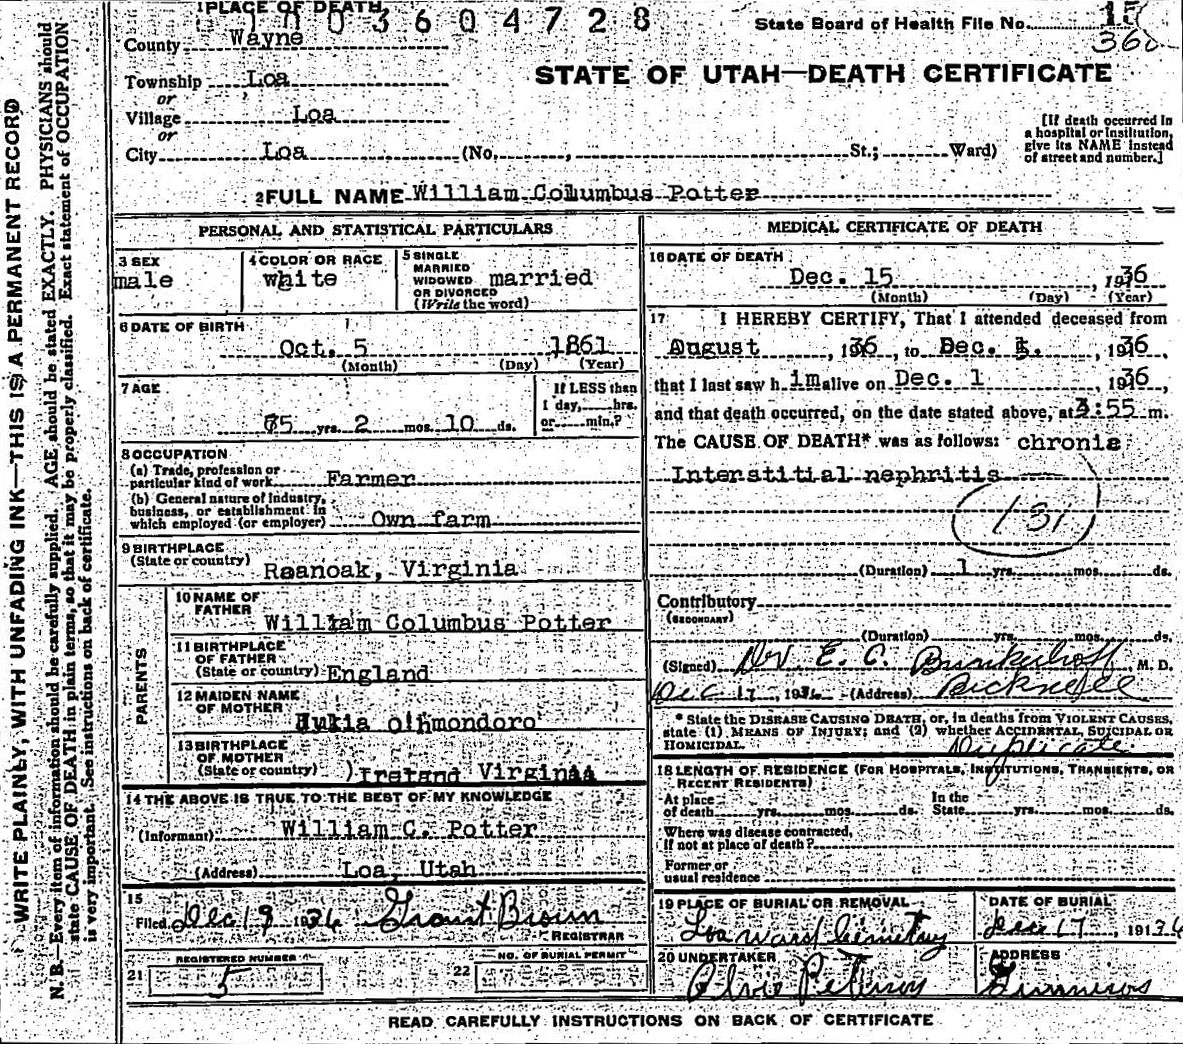 1 PLACE OF DEATH
1003604728
State Board of Health File No. 15
360
County Wayne
STATE OF UTAH—DEATH CERTIFICATE
Township Loa
or
Village Loa
or
City Loa (No. , St.; Ward)
[If death occurred in a hospital or institution, give its NAME instead of street and number.]
2 FULL NAME William Columbus Potter
PERSONAL AND STATISTICAL PARTICULARS
3 SEX
male
4 COLOR OR RACE
white
5 SINGLE MARRIED WIDOWED OR DIVORCED (Write the word)
married
6 DATE OF BIRTH
Oct. 5 1861
(Month) (Day) (Year)
7 AGE
75 yrs. 2 mos. 10 ds.
If LESS than 1 day, hrs. or min.?
8 OCCUPATION
(a) Trade, profession or particular kind of work Farmer
(b) General nature of Industry, business, or establishment in which employed (or employer) Own farm
9 BIRTHPLACE
(State or country) Roanoak, Virginia
PARENTS
10 NAME OF FATHER
William Columbus Potter
11 BIRTHPLACE OF FATHER
(State or country) England
12 MAIDEN NAME OF MOTHER
13 BIRTHPLACE OF MOTHER
(State or country) Ireland Virginia
14 THE ABOVE IS TRUE TO THE BEST OF MY KNOWLEDGE
(Informant) William C. Potter
(Address) Loa, Utah
15
Filed Dec 19 1936 Grant Brown
REGISTRAR
REGISTERED NUMBER
21 5
NO. OF BURIAL PERMIT
22
MEDICAL CERTIFICATE OF DEATH
16 DATE OF DEATH
Dec. 15, 1936
(Month) (Day) (Year)
17 I HEREBY CERTIFY, That I attended deceased from
August, 1936, to Dec. 1, 1936,
that I last saw h im alive on Dec. 1, 1936,
and that death occurred, on the date stated above, at 3:55 m.
The CAUSE OF DEATH* was as follows: chronic
Interstitial nephritis
131
(Duration) 1 yrs. mos. ds.
Contributory
(SECONDARY)
(Duration) yrs. mos. ds.
(Signed) Dr. E. C. Brinkerhoff, M. D.
Dec 17, 1936 (Address) Bicknell
* State the DISEASE CAUSING DEATH, or, in deaths from VIOLENT CAUSES, state (1) MEANS OF INJURY; and (2) whether ACCIDENTAL, SUICIDAL OR HOMICIDAL.
Duplicate
18 LENGTH OF RESIDENCE (FOR HOSPITALS, INSTITUTIONS, TRANSIENTS, OR RECENT RESIDENTS)
At place of death yrs. mos. ds. In the State yrs. mos. ds.
Where was disease contracted, if not at place of death?
Former or usual residence
19 PLACE OF BURIAL OR REMOVAL
Loa Ward Cemetery
DATE OF BURIAL
Dec 17, 1936
20 UNDERTAKER
Peterson
ADDRESS
READ CAREFULLY INSTRUCTIONS ON BACK OF CERTIFICATE
WRITE PLAINLY, WITH UNFADING INK—THIS IS A PERMANENT RECORD
N. B.—Every item of information should be carefully supplied. AGE should be stated EXACTLY. PHYSICIANS should
state CAUSE OF DEATH in plain terms, so that it may be properly classified. Exact statement of OCCUPATION
is very important. See instructions on back of certificate.